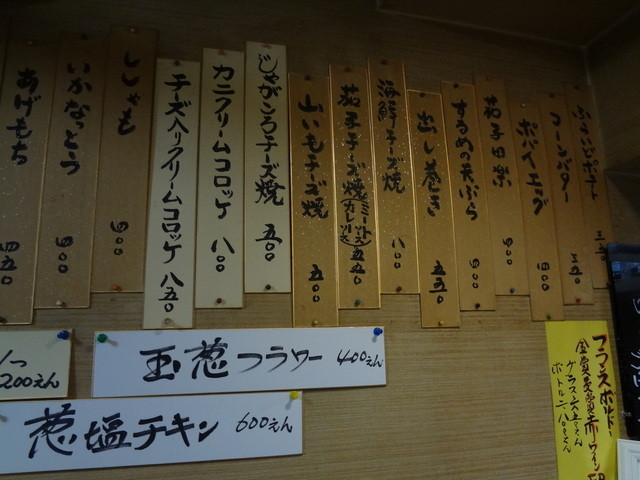 ふらいどポテト
コーンバター 三五〇
ポパイエッグ 四〇〇
茄子田楽 四〇〇
するめの天ぷら 四〇〇
出し巻き 五五〇
海鮮チーズ焼 八〇〇
茄子チーズ焼 五五〇
山いもチーズ焼 五〇〇
じゃがころチーズ焼 五〇〇
カニクリームコロッケ 八〇〇
チーズ入りクリームコロッケ 八五〇
ししゃも 四〇〇
いかなっとう 四〇〇
あげもち 四五〇
200えん
玉葱フラワー 400えん
葱塩チキン 600えん
フランスボルドー
金賞受賞赤ワイン